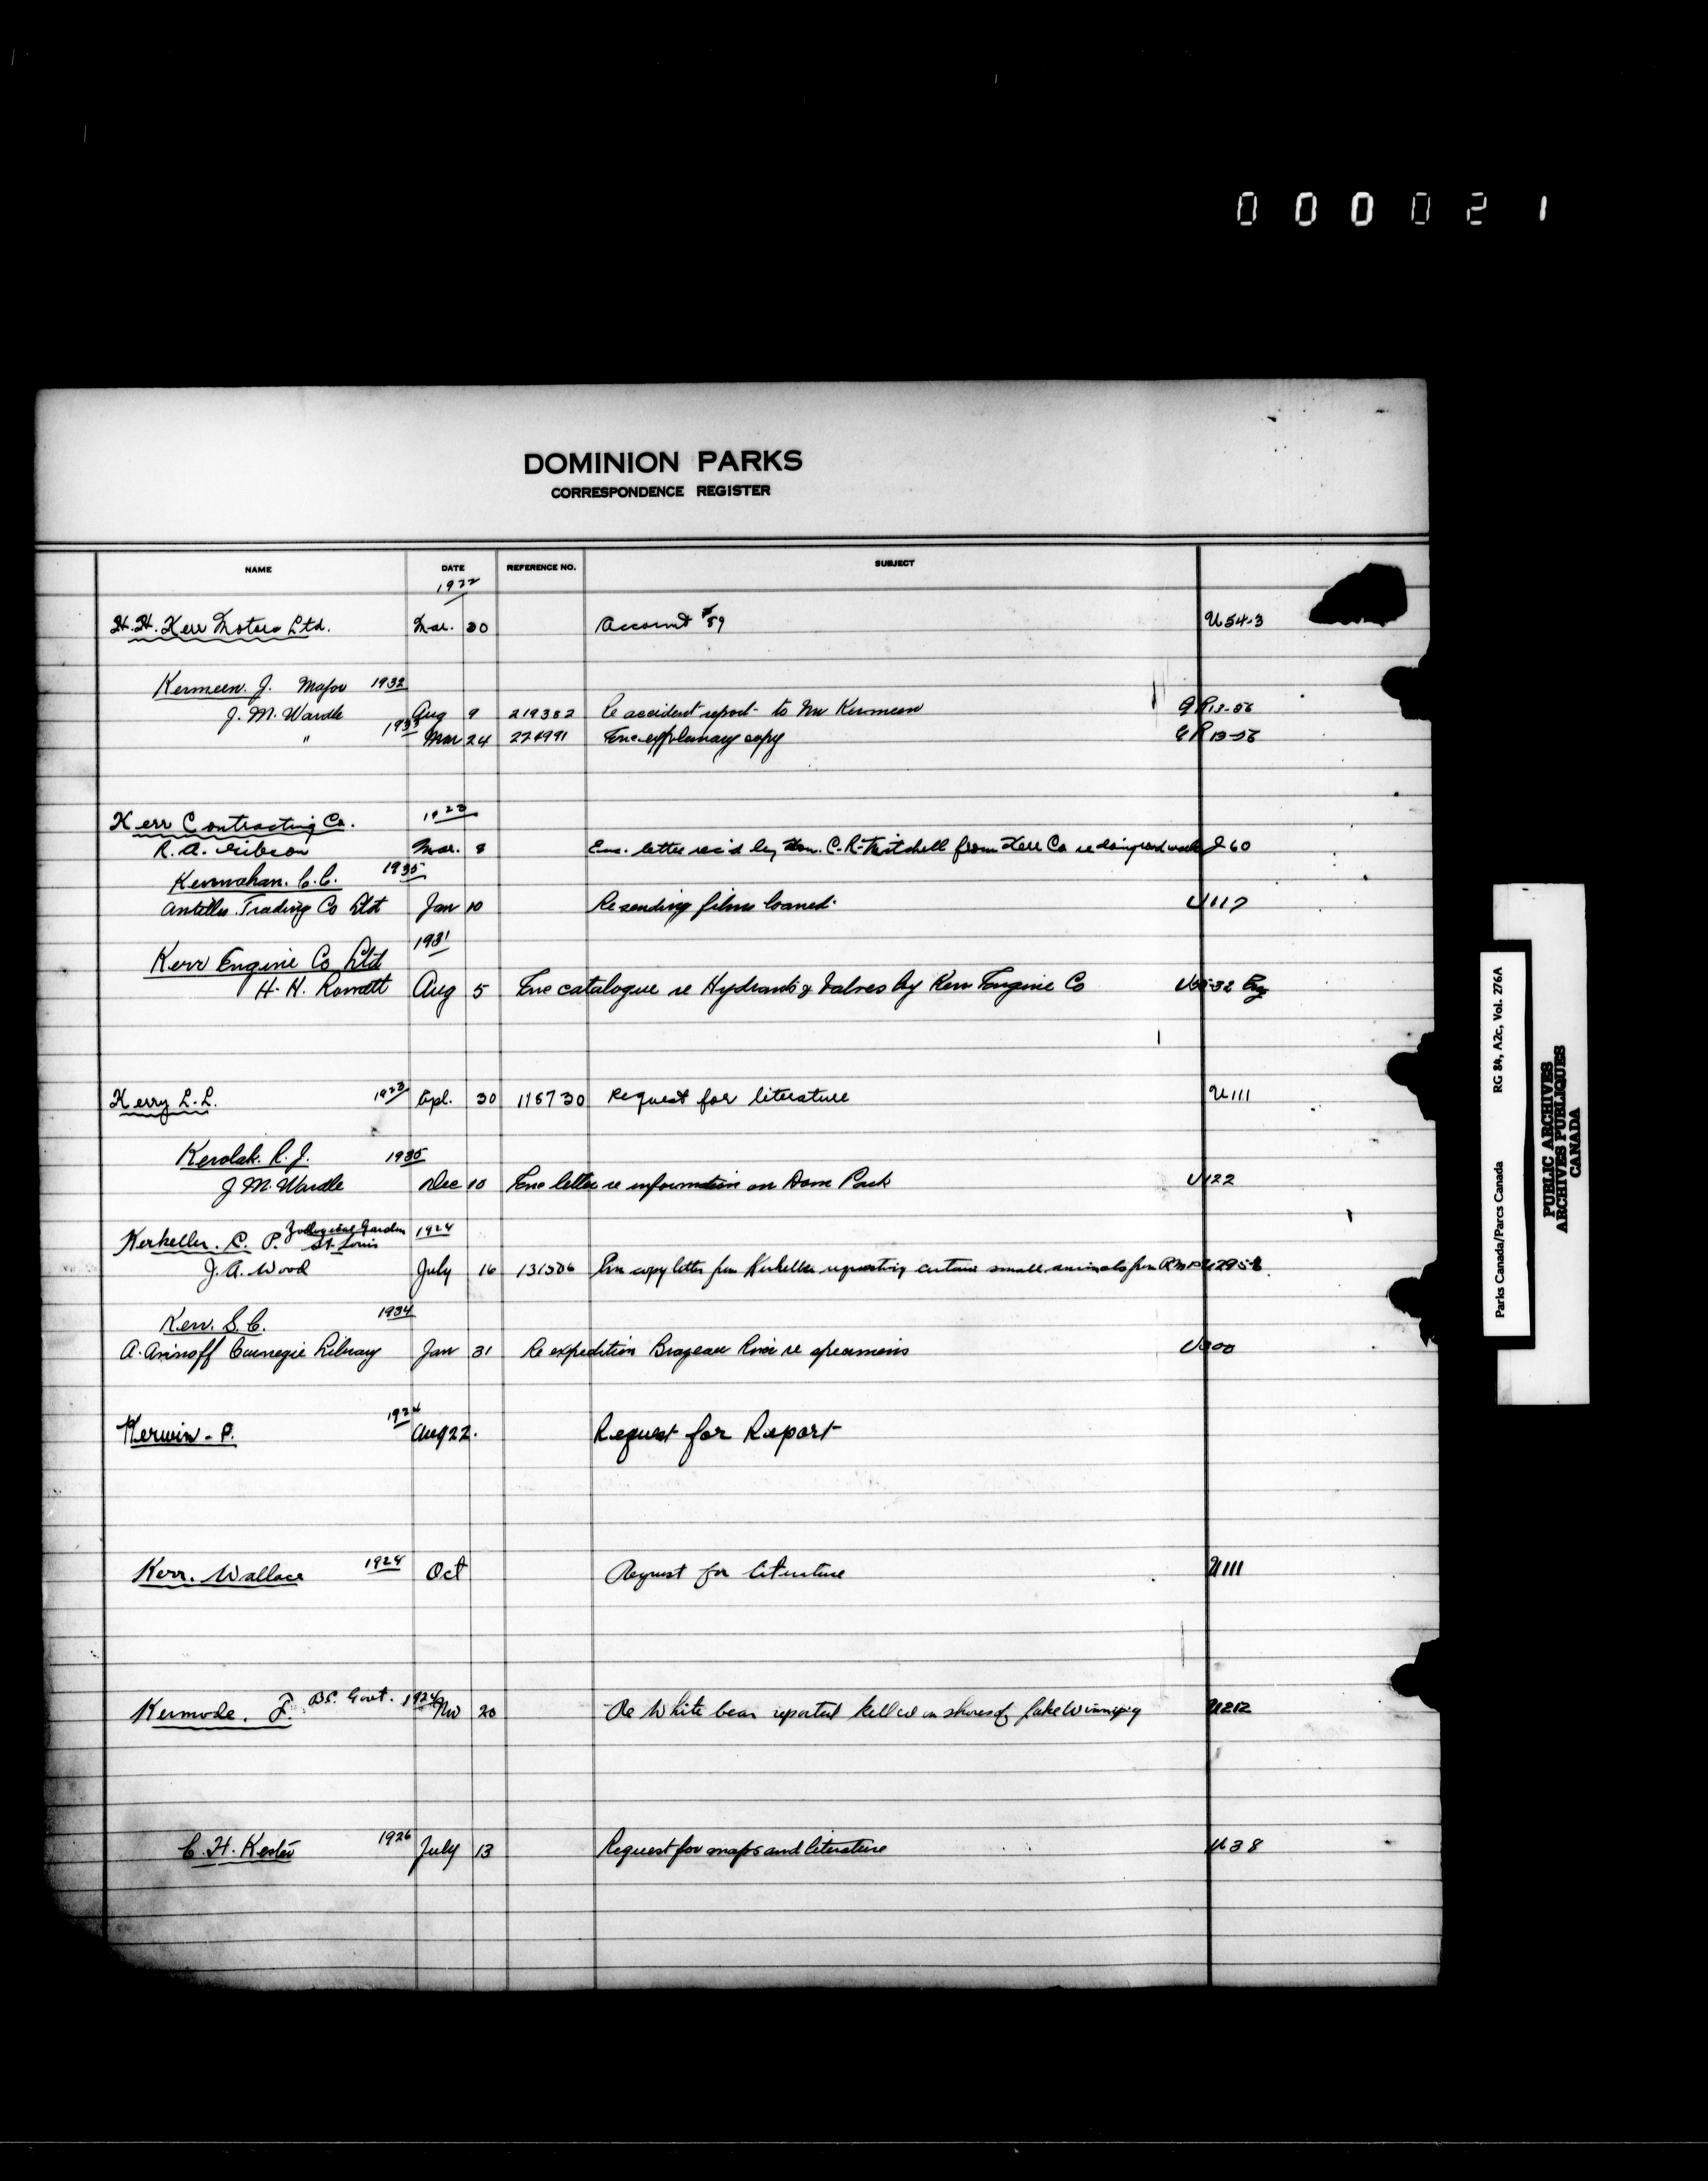 000021
DOMINION PARKS
CORRESPONDENCE REGISTER
NAME DATE REFERENCE NO. SUBJECT
1922
H.H. Kerr Motors Ltd. Mar. 30 Account #59 U54-3
Kermeen. J. Major 1932
J. M. Wardle Aug 9 219382 Re accident report to Mr Kermeen GR13-56
" 1933 Mar 24 224991 Enc copy GR13-56
Kerr Contracting Co. 1923
R. A. Gibson Mar. 8 Enc. letter rec'd by Hon. C. R. Mitchell from Kerr Co re doing road work J60
Kernahan. C.C. 1935
Antilles Trading Co Ltd Jan 10 Re sending films loaned. U117
Kerr Engine Co Ltd 1931
H. H. Rowatt Aug 5 Enc catalogue re Hydrants & Valves by Kerr Engine Co
Kerry L. L. 1923 Apl. 30 116730 Request for literature U111
Kerolak. R. J. 1935
J M. Wardle Dec 10 Enc letter re information on Dom Park U122
Kerkeller. C. P. Zoological Garden St. Louis 1924
J. A. Wood July 16 131506 Enc copy letter from Kerkeller requesting certain small animals from RMP U295-8.
Kerr. S. C. 1934
A. Avinoff Carnegie Library Jan 31 Re expedition Brazeau River re specimens U300
Kerwin - P. 1924 Aug 22. Request for Report
Kerr. Wallace 1924 Oct Request for literature U111
Kermode. F. B.C. Govt. 1924 Nov 20 Re White bear reported killed on shores of Lake Winnipeg U212
C. H. Kester 1926 July 13 Request for maps and literature U38
Parks Canada/Parcs Canada RG 84, A2c, Vol. 276A
PUBLIC ARCHIVES
ARCHIVES PUBLIQUES
CANADA